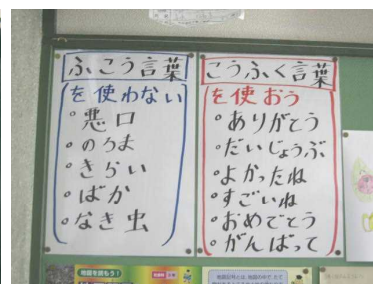 ふこう言葉
を使わない
°悪口
°のろま
°きらい
°ばか
°なき虫
こうふく言葉
を使おう
°ありがとう
°だいじょうぶ
°よかったね
°すごいね
°おめでとう
°がんばって
地図を読もう！